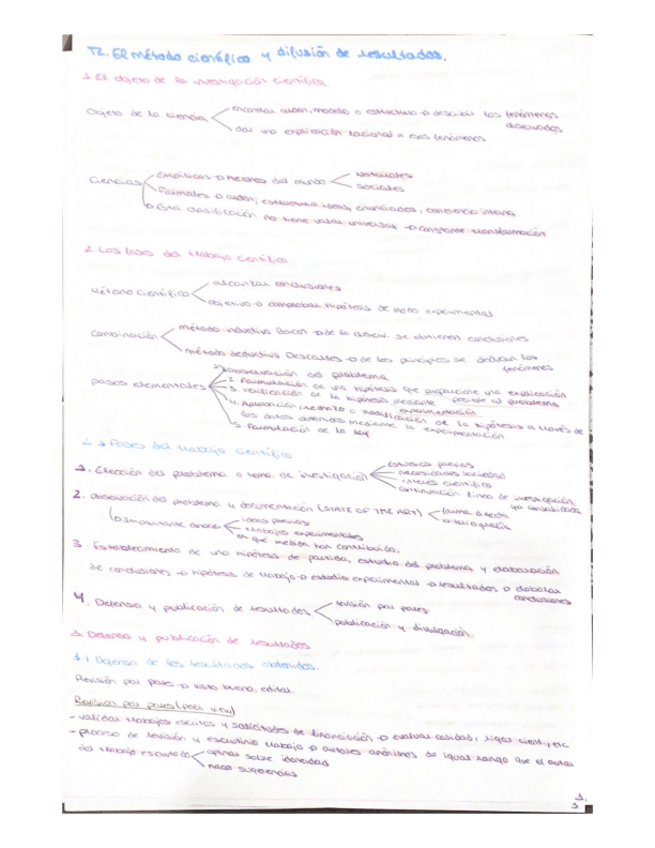 T2. El método científico y difusión de resultados.
1 El objeto de la investigación científica
Objeto de la ciencia encontrar orden, modelo o estructura → describir los fenómenos observados
dar una explicación racional a esos fenómenos
Ciencias Empíricas → hechos del mundo naturales
sociales
Formales → orden, estructura ideas, enunciados, conciencia interna
Esta clasificación no tiene valor universal → constante transformación
2. Las fases del trabajo científico
Método científico alcanzar conclusiones
objetivo → comprobar hipótesis de modo experimental
Combinación método inductivo Bacon → de la observ. se obtienen conclusiones
método deductivo Descartes → de los principios se deducen los fenómenos
pasos elementales 1. observación del problema
2. Formulación de una hipótesis que proporcione una explicación posible al problema
3. verificación de la hipótesis mediante experimentación
4. Aprobación, rechazo o modificación de la hipótesis a través de
los datos obtenidos mediante la experimentación
5. Formulación de la ley.
Fases del trabajo científico
1. Elección del problema o tema de investigación estudios previos
necesidades sociedad
interés científico
continuación línea de investigación ya consolidada
2. observación del problema y documentación (STATE OF THE ART) forma directa
bibliografía
Importante conocer ideas previas
trabajos experimentales
en qué medida han contribuido.
3. Establecimiento de una hipótesis de partida, estudio del problema y elaboración
de conclusiones → hipótesis de trabajo → estudio experimental → resultados → elaborar conclusiones
4. Defensa y publicación de resultados revisión por pares
publicación y divulgación.
Defensa y publicación de resultados
Defensa de los resultados obtenidos.
Revisión por pares → visto bueno, editar
Revisión por pares (peer view)
- validar trabajos escritos y solicitudes de financiación → evaluar calidad, rigor cient., etc
- proceso de revisión y escrutinio trabajo → autores anónimos de igual rango que el autor
del trabajo opinar sobre idoneidad
hacer sugerencias